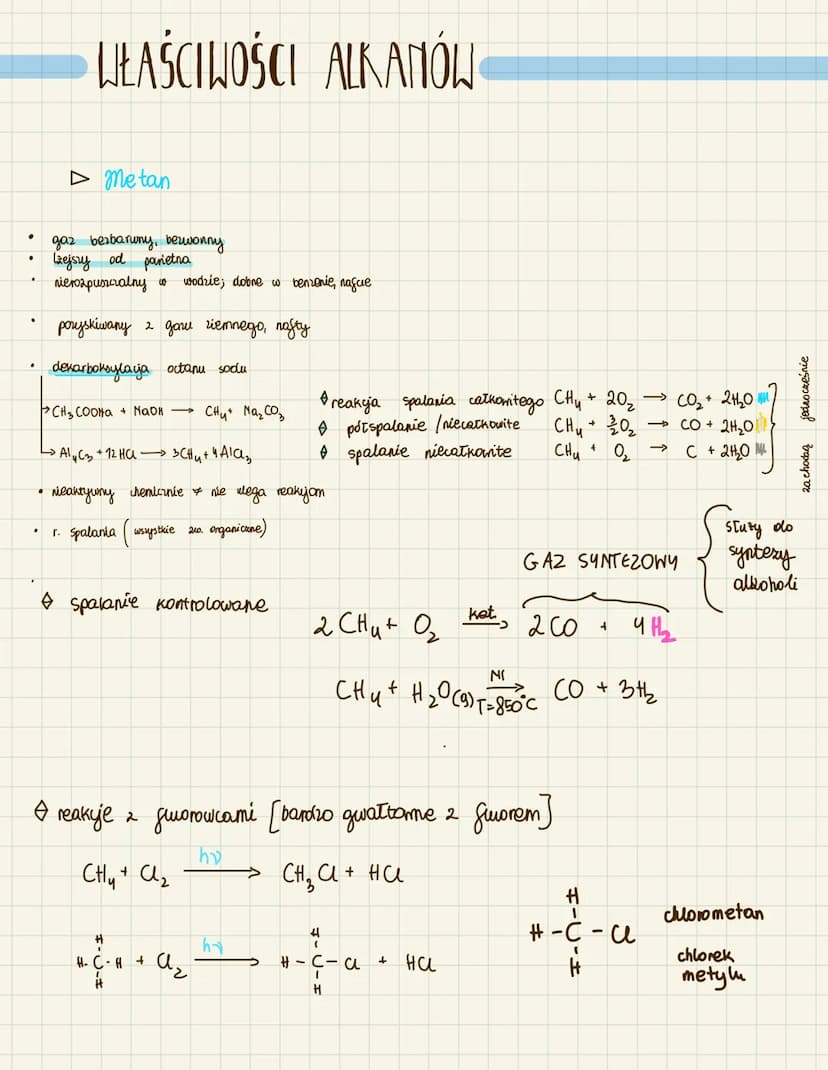 WŁAŚCIWOŚCI ALKANÓW
▷ Metan
• gaz bezbarwny, bezwonny
• lżejszy od powietrza
• nierozpuszczalny w wodzie; dobrze w benzenie, nafcie
• pozyskiwany z gazu ziemnego, nafty
• dekarboksylacja octanu sodu
→ CH₃COONa + NaOH → CH₄ + Na₂CO₃
→ Al₄C₃ + 12HCl → 3CH₄ + 4AlCl₃
◊ reakcja spalania całkowitego CH₄ + 2O₂ → CO₂ + 2H₂O
◊ półspalanie /niecałkowite CH₄ + 3/2 O₂ → CO + 2H₂O
◊ spalanie niecałkowite CH₄ + O₂ → C + 2H₂O
zachodzą jednocześnie
• nieaktywny chemicznie ≠ nie ulega reakcjom
• r. spalania (wszystkie zw. organiczne)
GAZ SYNTEZOWY
służy do
syntezy
alkoholi
◊ spalanie kontrolowane
2CH₄ + O₂ kat. → 2CO + 4H₂
CH₄ + H₂O(g) Ni → T=850°C CO + 3H₂
◊ reakcje z fluorowcami [bardzo gwałtowne z fluorem]
CH₄ + Cl₂ hν → CH₃Cl + HCl
H
H-C-H + Cl₂ hν →
H
H
H-C-Cl + HCl
H
H
H-C-Cl
H
chlorometan
chlorek
metylu